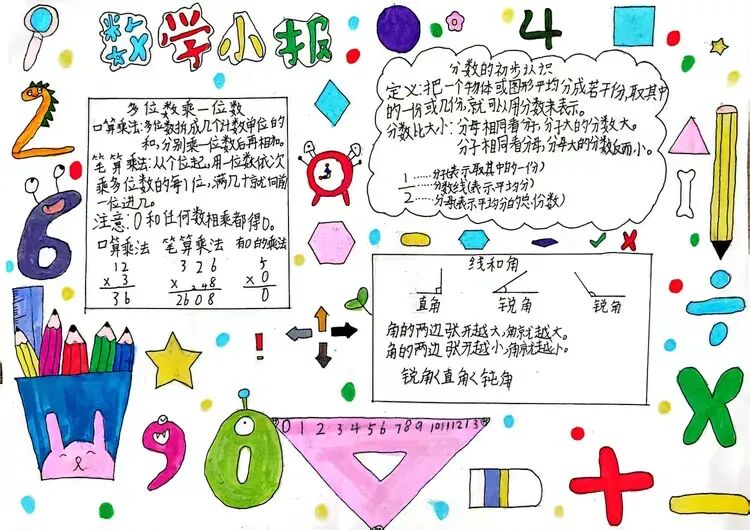 数学小报
多位数乘一位数
口算乘法:多位数拆成几个计数单位的
和,分别乘一位数后再相加。
笔算乘法:从个位起,用一位数依次
乘多位数的每1位,满几十就向前
一位进几。
注意:0和任何数相乘都得0。
口算乘法 笔算乘法 有0的乘法
12 326 5
×3 ×248 ×0
36 2608 0
分数的初步认识
定义:把一个物体或图形平均分成若干份,取其中
的一份或几份,就可以用分数来表示。
分数比大小:分母相同看分子,分子大的分数大。
分子相同看分母,分母大的分数反而小。
1……分子(表示取其中的一份)
……分数线(表示平均分)
2……分母(表示平均分的总份数)
线和角
直角 锐角 锐角
角的两边张开越大,角就越大。
角的两边张开越小,角就越小。
锐角<直角<钝角
4
2
6
!
9
0
0 1 2 3 4 5 6 7 8 9 10 11 12 13
÷
×
+
-